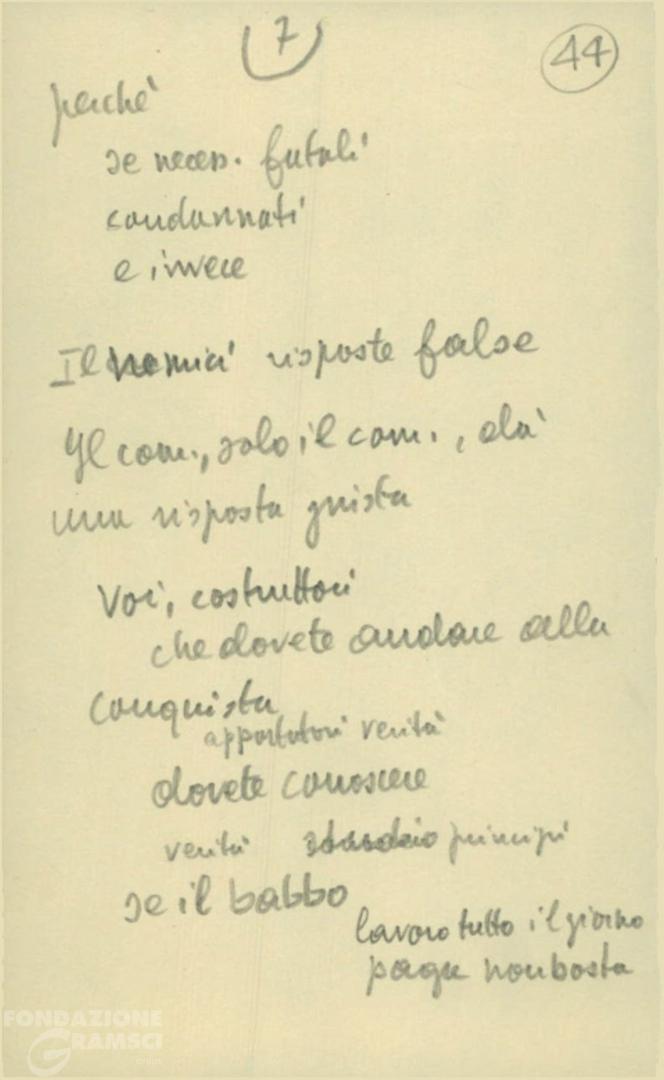 7
44
perché
se necess. fatali
condannati
e invece
Il nemici risposte false
Il com., solo il com., dà
una risposta giusta
Voi, costruttori
che dovete andare alla
conquista
apportatori verità
dovete conoscere
verità studio principi
se il babbo
lavoro tutto il giorno
paga non basta
FONDAZIONE
GRAMSCI